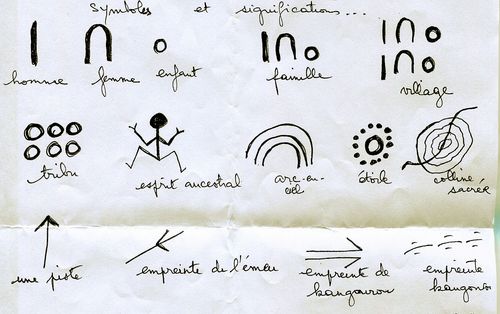 Symboles et significations...
homme femme enfant famille village
tribu esprit ancestral arc-en-ciel étoile colline sacrée
une piste empreinte de l'émeu empreinte de kangourou empreinte